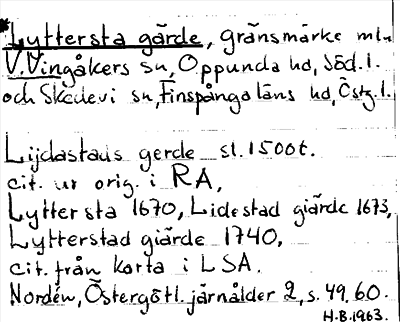 *Lyttersta gärde, gränsmärke mln
V.Vingåkers sn, Oppunda hd, Söd.l.
och Skedevi sn, Finspånga läns hd, Östg.l.
Lijdastads gerde sl. 1500t.
cit. ur orig. i RA,
Lyttersta 1670, Lidestad giärde 1673,
Lytterstad giärde 1740,
cit. från karta i LSA.
Nordén, Östergötl. järnålder 2, s. 49, 60.
H.B. 1963.